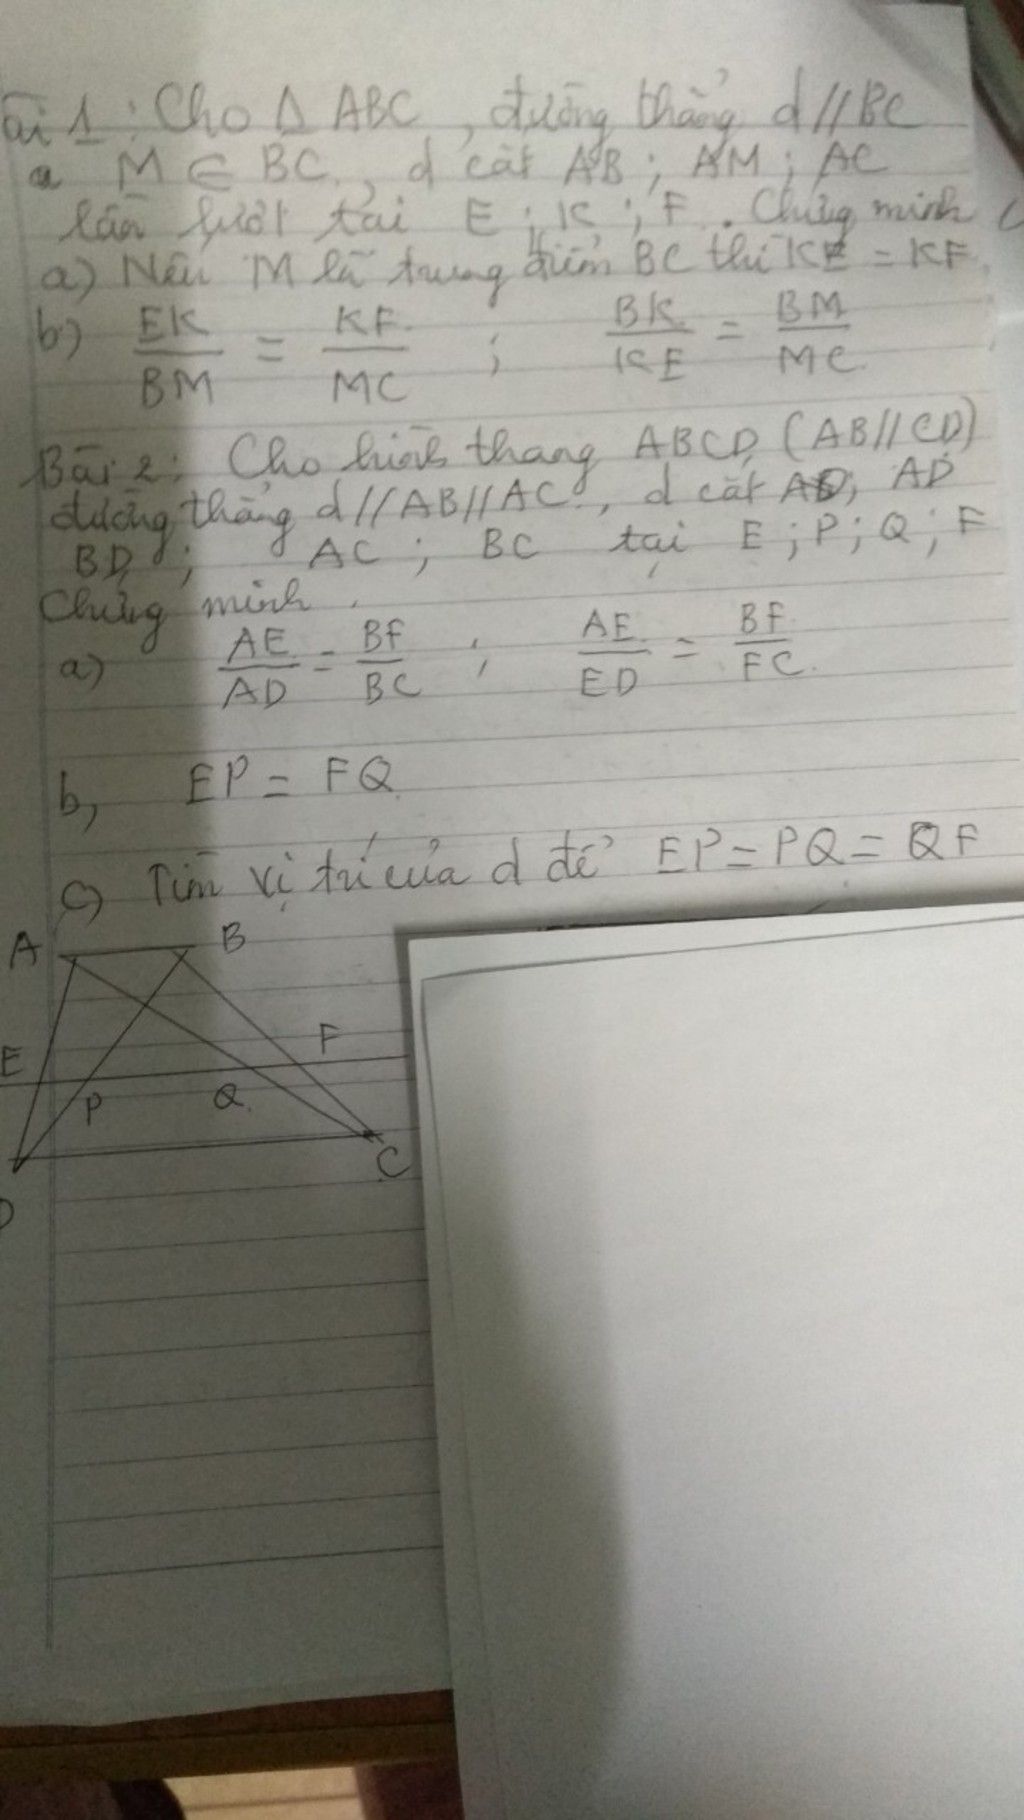 ài 1: Cho Δ ABC, đường thẳng d // BC
M ∈ BC., d cắt AB; AM; AC
lần lượt tại E; K; F. Chứng minh
a) Nếu M là trung điểm BC thì KE = KF.
b) EK/BM = KF/MC ; BK/KE = BM/MC
Bài 2: Cho hình thang ABCD (AB//CD)
đường thẳng d // AB // AC, d cắt AD, AD
BD; AC; BC tại E; P; Q; F
Chứng minh.
a) AE/AD = BF/BC ; AE/ED = BF/FC.
b, EP = FQ
c) Tìm vị trí của d để EP = PQ = QF
A B
E F
P Q
C
D